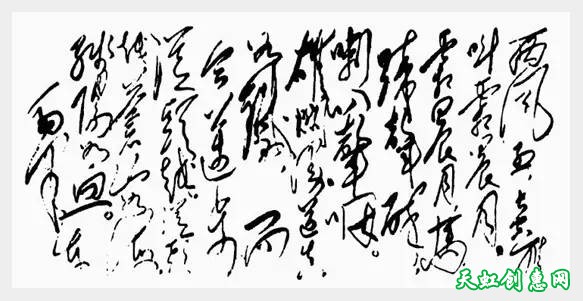 西风烈 长空雁
叫霜晨月。
霜晨月,马
蹄声碎,
喇叭声咽。
雄关漫道真
如铁,而
今迈步
从头越,从头
越,苍山如海,
残阳如血。
天虹创意网